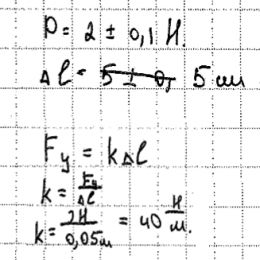 P = 2 ± 0,1 Н.
Δl = 5 ± 0, 5 см
Fy = kΔl
k = Fy/Δl
k = 2Н/0,05м = 40 Н/м.